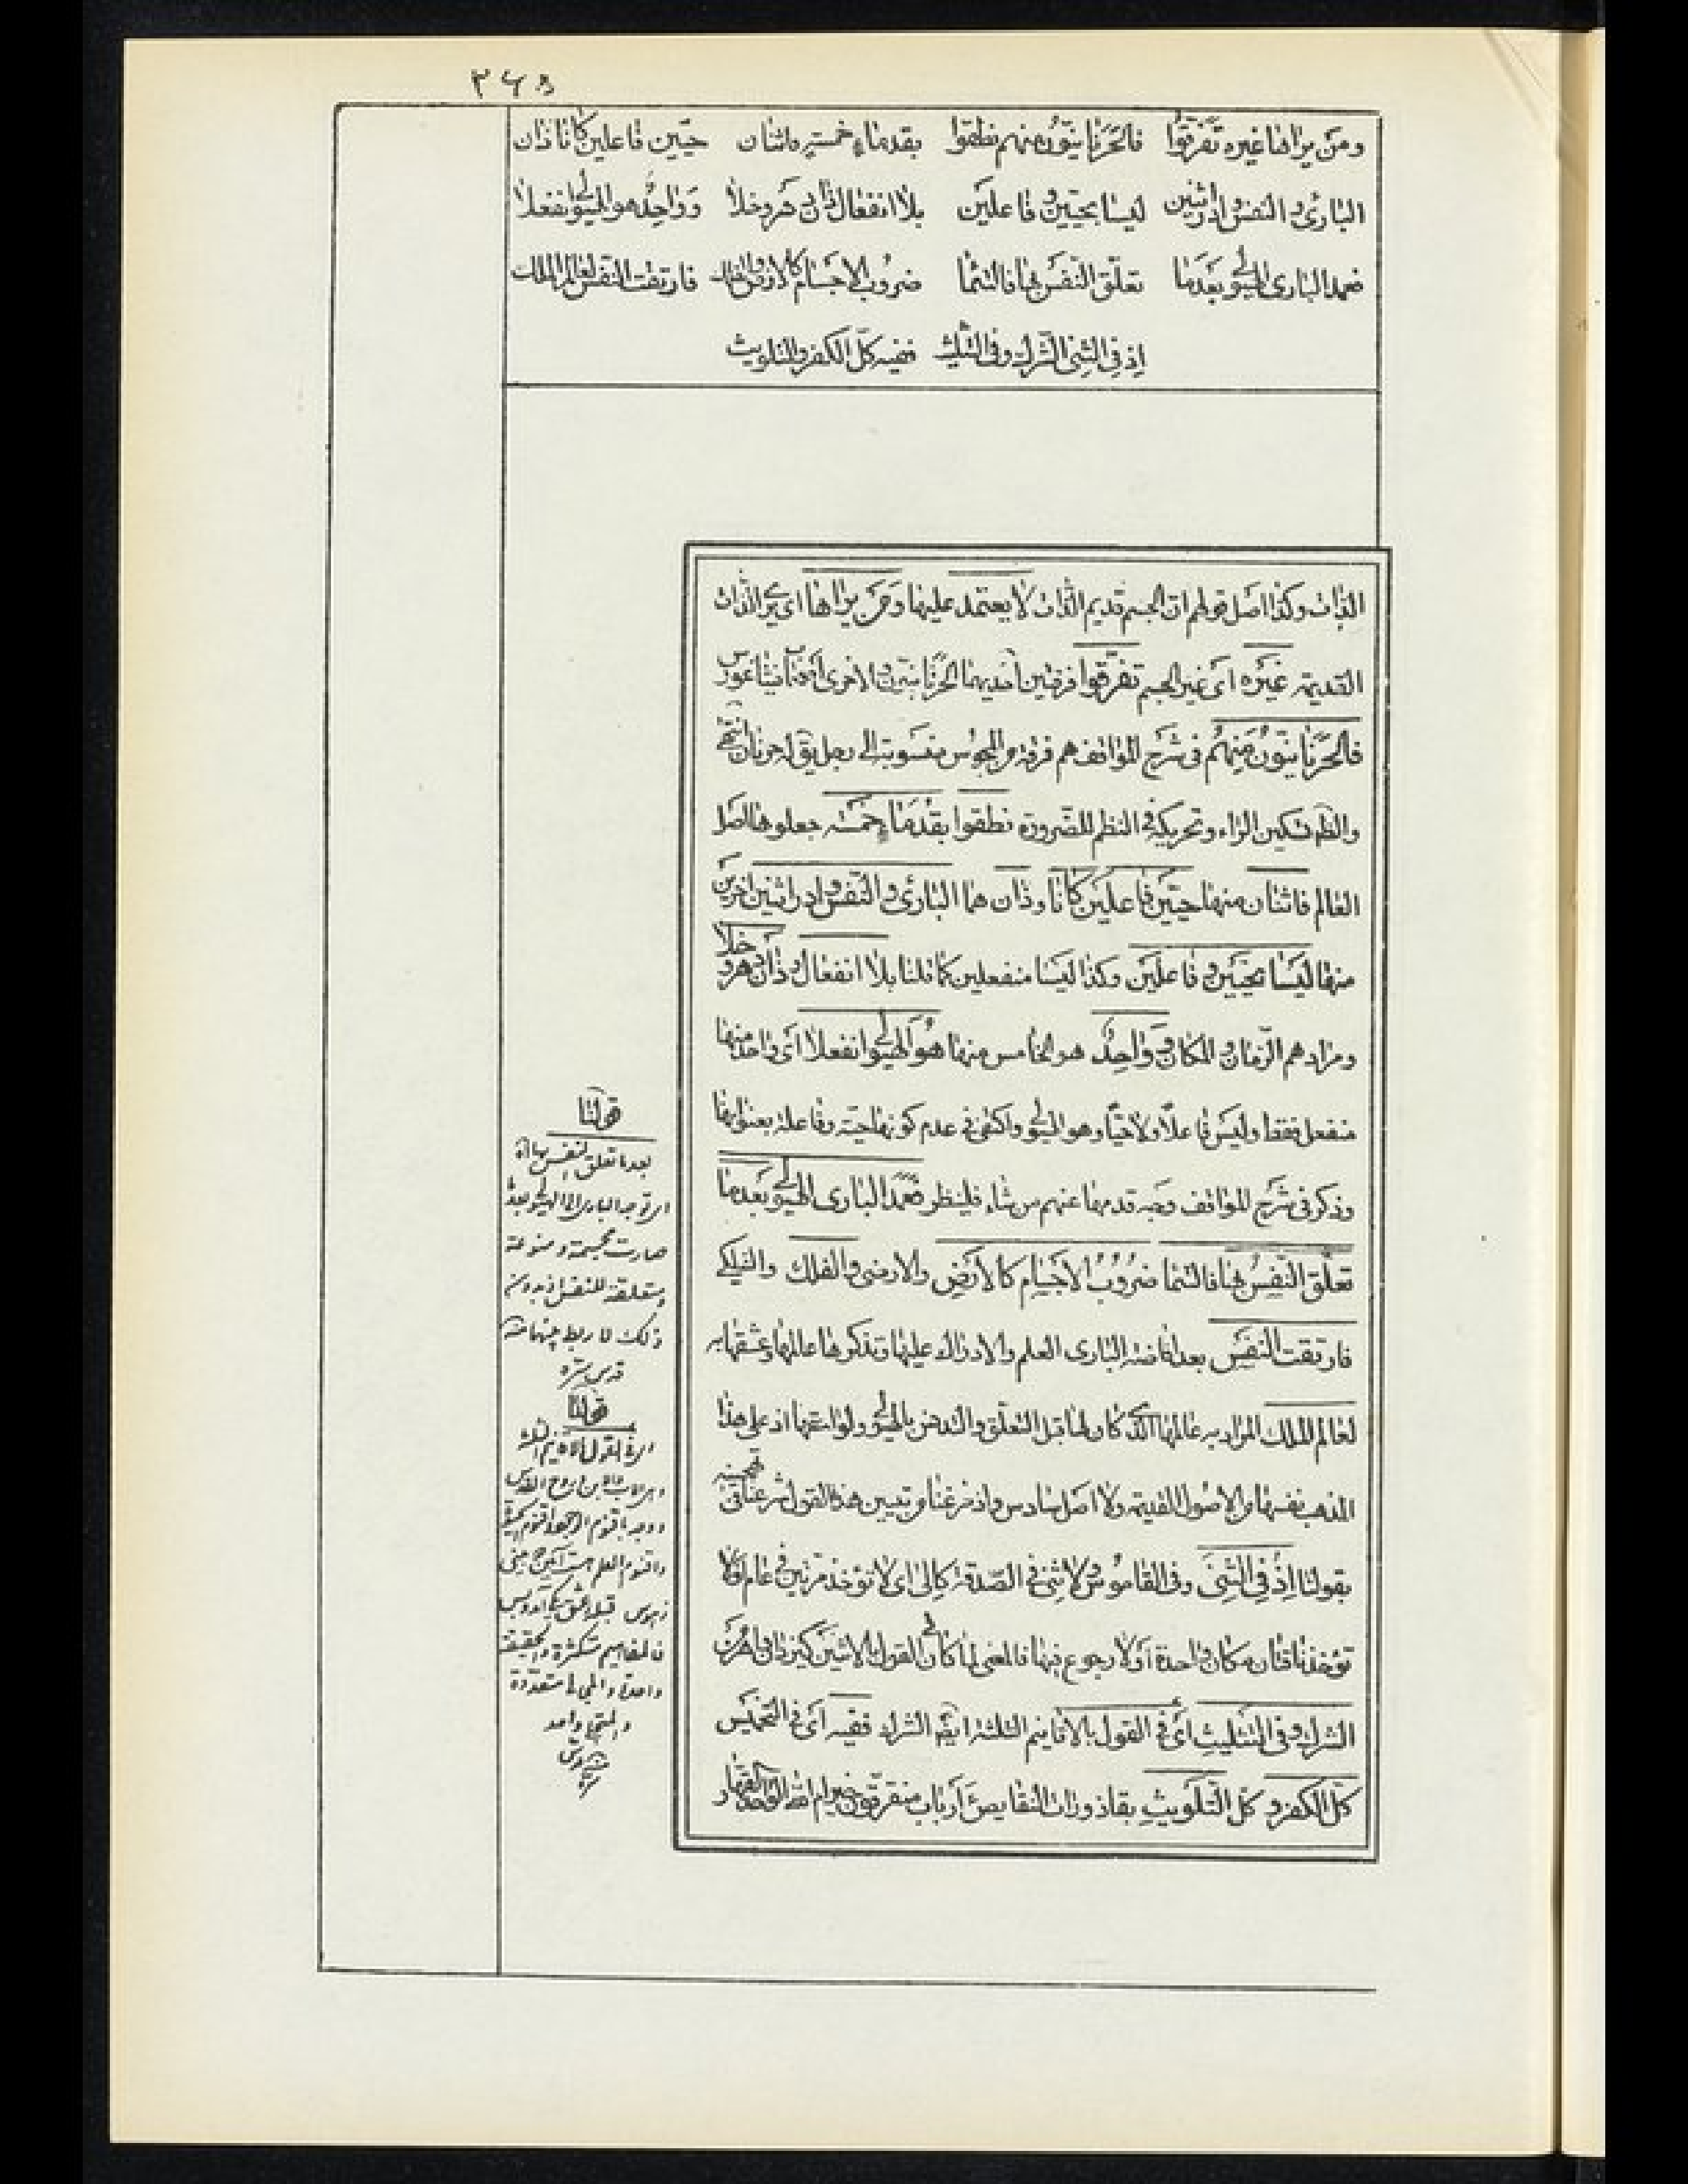 ۲۶۵
ومن يراها غيره تفرقوا فالحرنانيّون منهم نطقوا بقدماء خمسة فاثنان حيّين فاعلين كانا ذان
البارئ والنفس وادر اثنين ليسا بحيّين وفاعلين بلا انفعال ذان دهر وخلا وواحد هو الهيولى انفعلا
فعمد البارى الهيولى بعدما تعلّق النفس بها فالتئما ضروب الاجسام كالارض والفلك فارتقت النفس لعالم الملك
اذ في الثني الشرك وفي التثليث ففيه كلّ الكفر والتلويث
الذات وكذا اصل قولهم ان الجسم قديم الذات لا يعتمد عليها ومن يراها اى يرى الذات
القديمة غيره اى غير الجسم تفرّقوا فرقتين احديهما الحرّنانيّين والاخرى اصحاب فيثاغورس
فالحرنانيّون منهم فى شرح المواقف هم فرقة من المجوس منسوبة الى رجل يق له حرنان انتهى
والظّ تسكين الراء وتحريكه في النظم للضرورة نطقوا بقدماء خمسة جعلوها اصل
العالم فاثنان منها حيّين فاعلين كانا وذان هما البارئ والنفس وادر اثنين اخرين
منها ليسا بحيّين وفاعلين وكذا ليسا منفعلين كما قلنا بلا انفعال وذان دهر وخلا
ومرادهم الزمان والمكان وواحد هو الخامس منها هو الهيولى انفعلا اى واحد منها
منفعل فقط وليس فاعلا ولا حيّا وهو الهيولى واكتفى فى عدم كونها حية وفاعلة بعنوانها
وذكر فى شرح المواقف وجه قدمها عنهم من شاء فلينظر فعمد البارى الهيولى بعدما
تعلّق النفس بها فالتئما ضروب الاجسام كالارض والارضى والفلك والفلكي
فارتقت النفس بعد افاضة البارى العلم والادراك عليها وتذكرها عالمها وعشقها به
لعالم الملك المراد به عالمها الذى كان لها قبل التعلّق والتدنس بالهيولى ولواحقها اذ على هذا
المذهب نفسها من الاصول القديمة ولا اصل سادس واذ فرغنا من تبيين هذا القول شرعنا فى تهجينه
بقولنا اذ فى الثنى وفى القاموس لا ثنى فى الصدقة كالى اى لا تؤخذ مرتين فى عام او لا
تؤخذ ناقتان مكان واحدة او لا رجوع فيها فالمعنى لما كان فى القول بالاثنين كيزدان واهرمن
الشرك وفى التثليث اى فى القول بالاقانيم الثلثة ايضا الشرك ففيه اى فى التخميس
كلّ الكفر وكلّ التلويث بقاذورات النقايص أارباب متفرقون خير ام الله الواحد القهار
قولنا
بعدما تعلق النفس بها
اى توجه البارى الى الهيولى بعدما
صارت مجسمة ومنوعة
ومتعلقة للنفس اذ بدون
ذلك لا ربط بينهما منه
قدس سره
قولنا
اى فى القول بالاقانيم الثلثة
واقنوم العلم
فالمفاهيم متكثرة والحقيقة
واحدة والمجالى متعددة
والمتجلى واحد